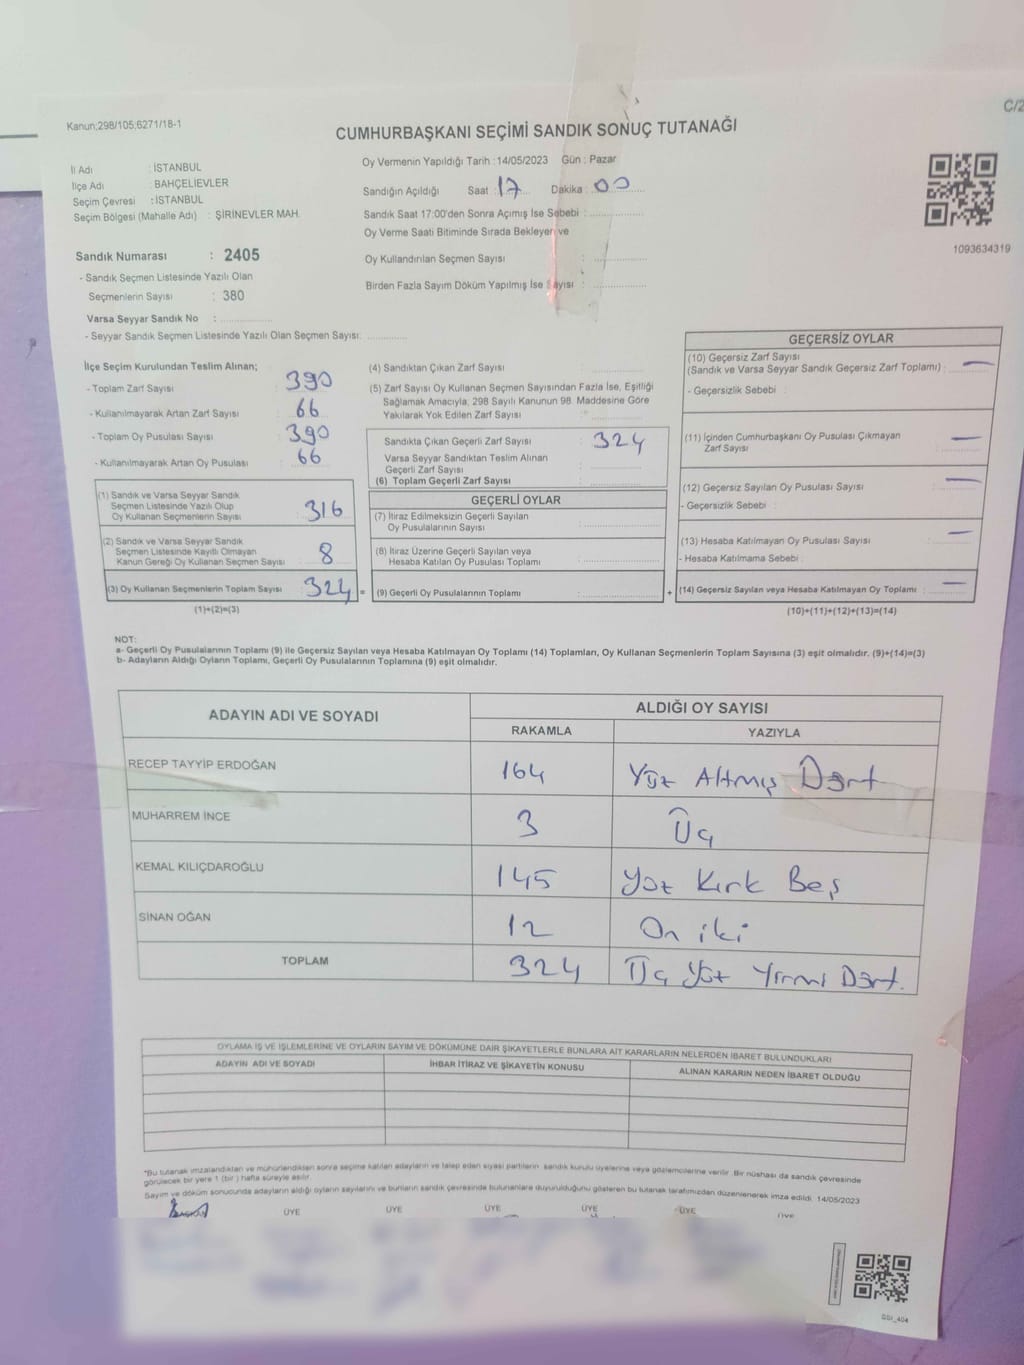 C/2
Kanun;298/105;6271/18-1
CUMHURBAŞKANI SEÇİMİ SANDIK SONUÇ TUTANAĞI
İl Adı : İSTANBUL
İlçe Adı : BAHÇELİEVLER
Seçim Çevresi : İSTANBUL
Seçim Bölgesi (Mahalle Adı) : ŞİRİNEVLER MAH.
Oy Vermenin Yapıldığı Tarih : 14/05/2023 Gün : Pazar
Sandığın Açıldığı Saat : 17 Dakika : 00
Sandık Saat 17:00'den Sonra Açımış İse Sebebi :
Oy Verme Saati Bitiminde Sırada Bekleyen ve
Oy Kullandırılan Seçmen Sayısı :
Birden Fazla Sayım Döküm Yapılmış İse Sayısı :
1093634319
Sandık Numarası : 2405
- Sandık Seçmen Listesinde Yazılı Olan
Seçmenlerin Sayısı : 380
Varsa Seyyar Sandık No :
- Seyyar Sandık Seçmen Listesinde Yazılı Olan Seçmen Sayısı:
İlçe Seçim Kurulundan Teslim Alınan;
- Toplam Zarf Sayısı : 390
- Kullanılmayarak Artan Zarf Sayısı : 66
- Toplam Oy Pusulası Sayısı : 390
- Kullanılmayarak Artan Oy Pusulası : 66
(1) Sandık ve Varsa Seyyar Sandık
Seçmen Listesinde Yazılı Olup
Oy Kullanan Seçmenlerin Sayısı : 316
(2) Sandık ve Varsa Seyyar Sandık
Seçmen Listesinde Kayıtlı Olmayan
Kanun Gereği Oy Kullanan Seçmen Sayısı : 8
(3) Oy Kullanan Seçmenlerin Toplam Sayısı : 324 =
(1)+(2)=(3)
(4) Sandıktan Çıkan Zarf Sayısı :
(5) Zarf Sayısı Oy Kullanan Seçmen Sayısından Fazla İse, Eşitliği
Sağlamak Amacıyla, 298 Sayılı Kanunun 98. Maddesine Göre
Yakılarak Yok Edilen Zarf Sayısı :
Sandıkta Çıkan Geçerli Zarf Sayısı : 324
Varsa Seyyar Sandıktan Teslim Alınan
Geçerli Zarf Sayısı :
(6) Toplam Geçerli Zarf Sayısı :
GEÇERLİ OYLAR
(7) İtiraz Edilmeksizin Geçerli Sayılan
Oy Pusulalarının Sayısı :
(8) İtiraz Üzerine Geçerli Sayılan veya
Hesaba Katılan Oy Pusulası Toplamı :
(9) Geçerli Oy Pusulalarının Toplamı : +
GEÇERSİZ OYLAR
(10) Geçersiz Zarf Sayısı
(Sandık ve Varsa Seyyar Sandık Geçersiz Zarf Toplamı) : —
- Geçersizlik Sebebi :
(11) İçinden Cumhurbaşkanı Oy Pusulası Çıkmayan
Zarf Sayısı : —
(12) Geçersiz Sayılan Oy Pusulası Sayısı : —
- Geçersizlik Sebebi :
(13) Hesaba Katılmayan Oy Pusulası Sayısı : —
- Hesaba Katılmama Sebebi :
(14) Geçersiz Sayılan veya Hesaba Katılmayan Oy Toplamı : —
(10)+(11)+(12)+(13)=(14)
NOT:
a- Geçerli Oy Pusulalarının Toplamı (9) ile Geçersiz Sayılan veya Hesaba Katılmayan Oy Toplamı (14) Toplamları, Oy Kullanan Seçmenlerin Toplam Sayısına (3) eşit olmalıdır. (9)+(14)=(3)
b- Adayların Aldığı Oyların Toplamı, Geçerli Oy Pusulalarının Toplamına (9) eşit olmalıdır.
ADAYIN ADI VE SOYADI ALDIĞI OY SAYISI
RAKAMLA YAZIYLA
RECEP TAYYİP ERDOĞAN 164 Yüz Altmış Dört
MUHARREM İNCE 3 Üç
KEMAL KILIÇDAROĞLU 145 Yüz Kırk Beş
SİNAN OĞAN 12 On iki
TOPLAM 324 Üç Yüz Yirmi Dört.
OYLAMA İŞ VE İŞLEMLERİNE VE OYLARIN SAYIM VE DÖKÜMÜNE DAİR ŞİKAYETLERLE BUNLARA AİT KARARLARIN NELERDEN İBARET BULUNDUKLARI
ADAYIN ADI VE SOYADI İHBAR İTİRAZ VE ŞİKAYETİN KONUSU ALINAN KARARIN NEDEN İBARET OLDUĞU
*Bu tutanak imzalandıktan ve mühürlendikten sonra seçime katılan adayların ve talep eden siyasi partilerin sandık kurulu üyelerine veya gözlemcilerine verilir. Bir nüshası da sandık çevresinde
görülecek bir yere 1 (bir) hafta süreyle asılır.
Sayım ve döküm sonucunda adayların aldığı oyların sayılarını ve bunların sandık çevresinde bulunanlara duyurulduğunu gösteren bu tutanak tarafımızdan düzenlenerek imza edildi. 14/05/2023
BAŞKAN ÜYE ÜYE ÜYE ÜYE ÜYE ÜYE
GSI_404